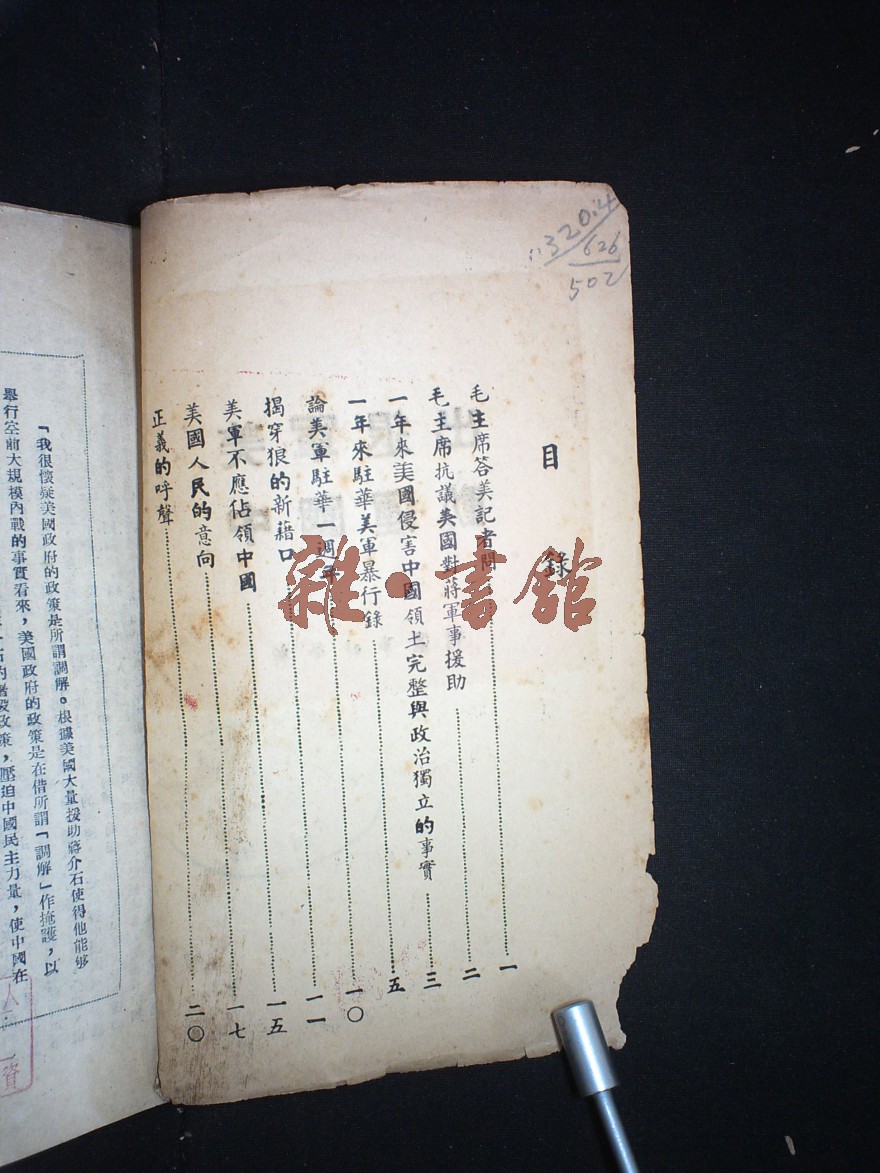 320.4
626
502
目錄
毛主席答美記者問……一
毛主席抗議美國對蔣軍事援助……二
一年來美國侵害中國領土完整與政治獨立的事實……三
一年來駐華美軍暴行錄……五
論美軍駐華一週年……一〇
揭穿狼的新藉口……一一
美軍不應佔領中國……一五
美國人民的意向……一七
正義的呼聲……二〇
「我很懷疑美國政府的政策是所謂調解。根據美國大量援助蔣介石使得他能夠
舉行空前大規模內戰的事實看來，美國政府的政策是在借所謂「調解」作掩護，以
的屠殺政策，壓迫中國民主力量，使中國在
資
雜·書館